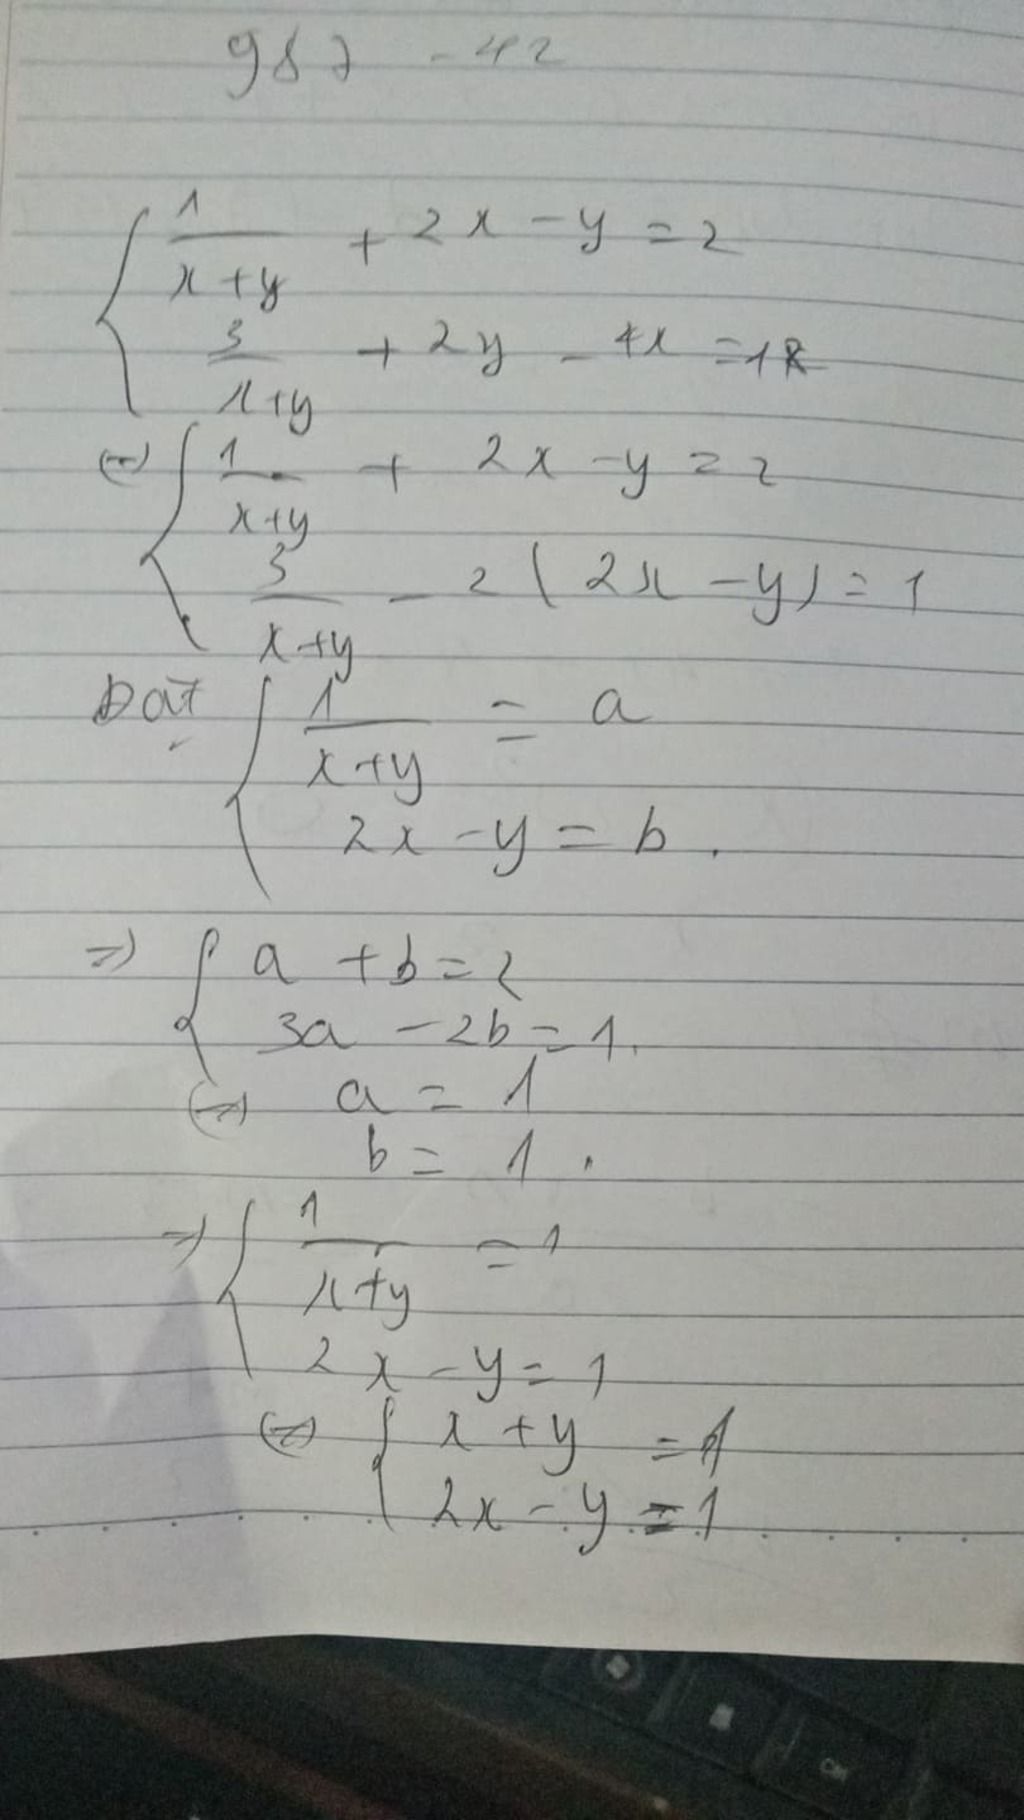 987 - 42
1/(x+y) + 2x - y = 2
3/(x+y) + 2y - 4x = 1
⇔ 1/(x+y) + 2x - y = 2
3/(x+y) - 2(2x - y) = 1
Đặt 1/(x+y) = a
2x - y = b.
⇒ a + b = 2
3a - 2b = 1.
⇔ a = 1
b = 1.
⇒ 1/(x+y) = 1
2x - y = 1
⇔ x + y = 1
2x - y = 1